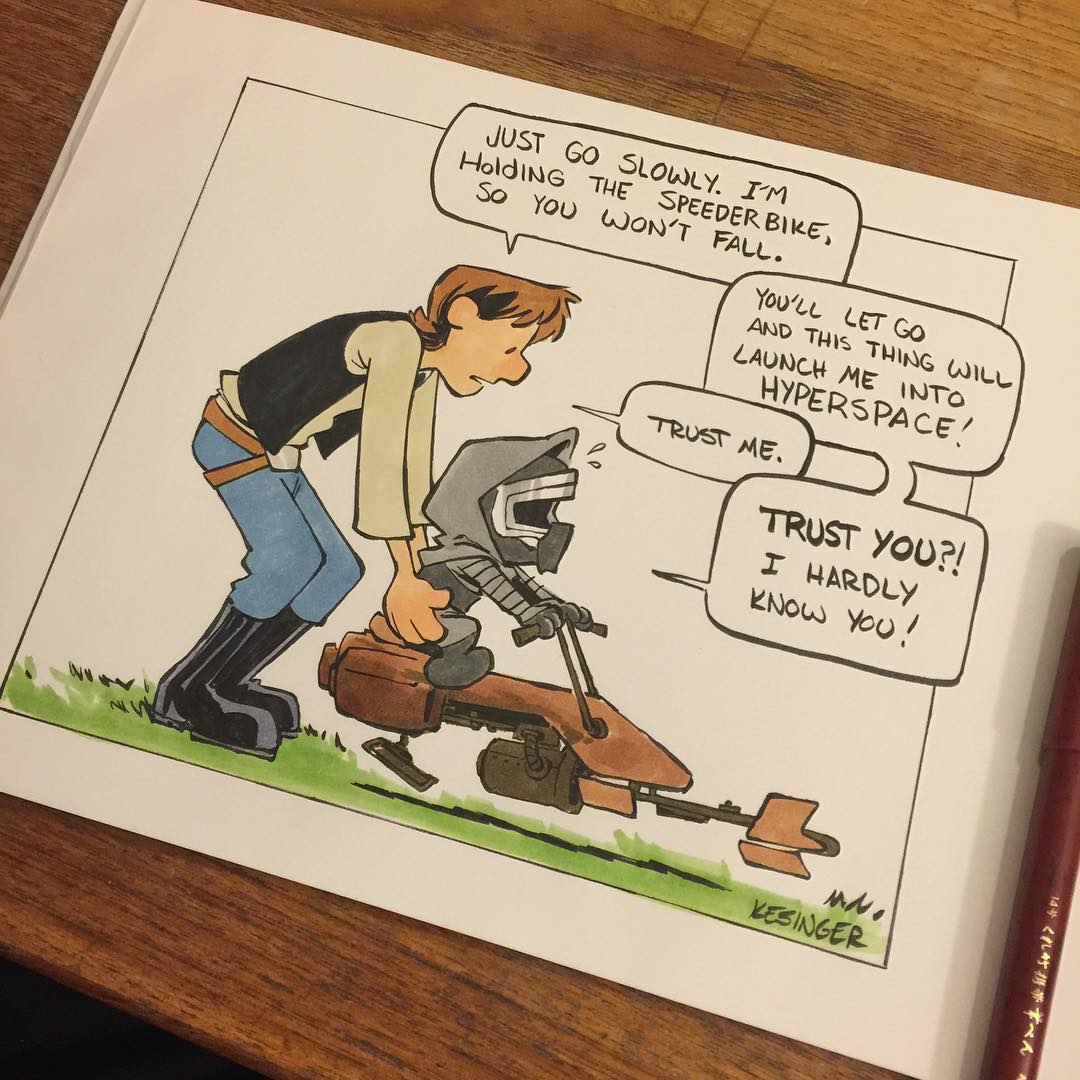 JUST GO SLOWLY. I'M
HOLDING THE SPEEDERBIKE,
SO YOU WON'T FALL.
YOU'LL LET GO
AND THIS THING WILL
LAUNCH ME INTO
HYPERSPACE!
TRUST ME.
TRUST YOU?!
I HARDLY
KNOW YOU!
KESINGER